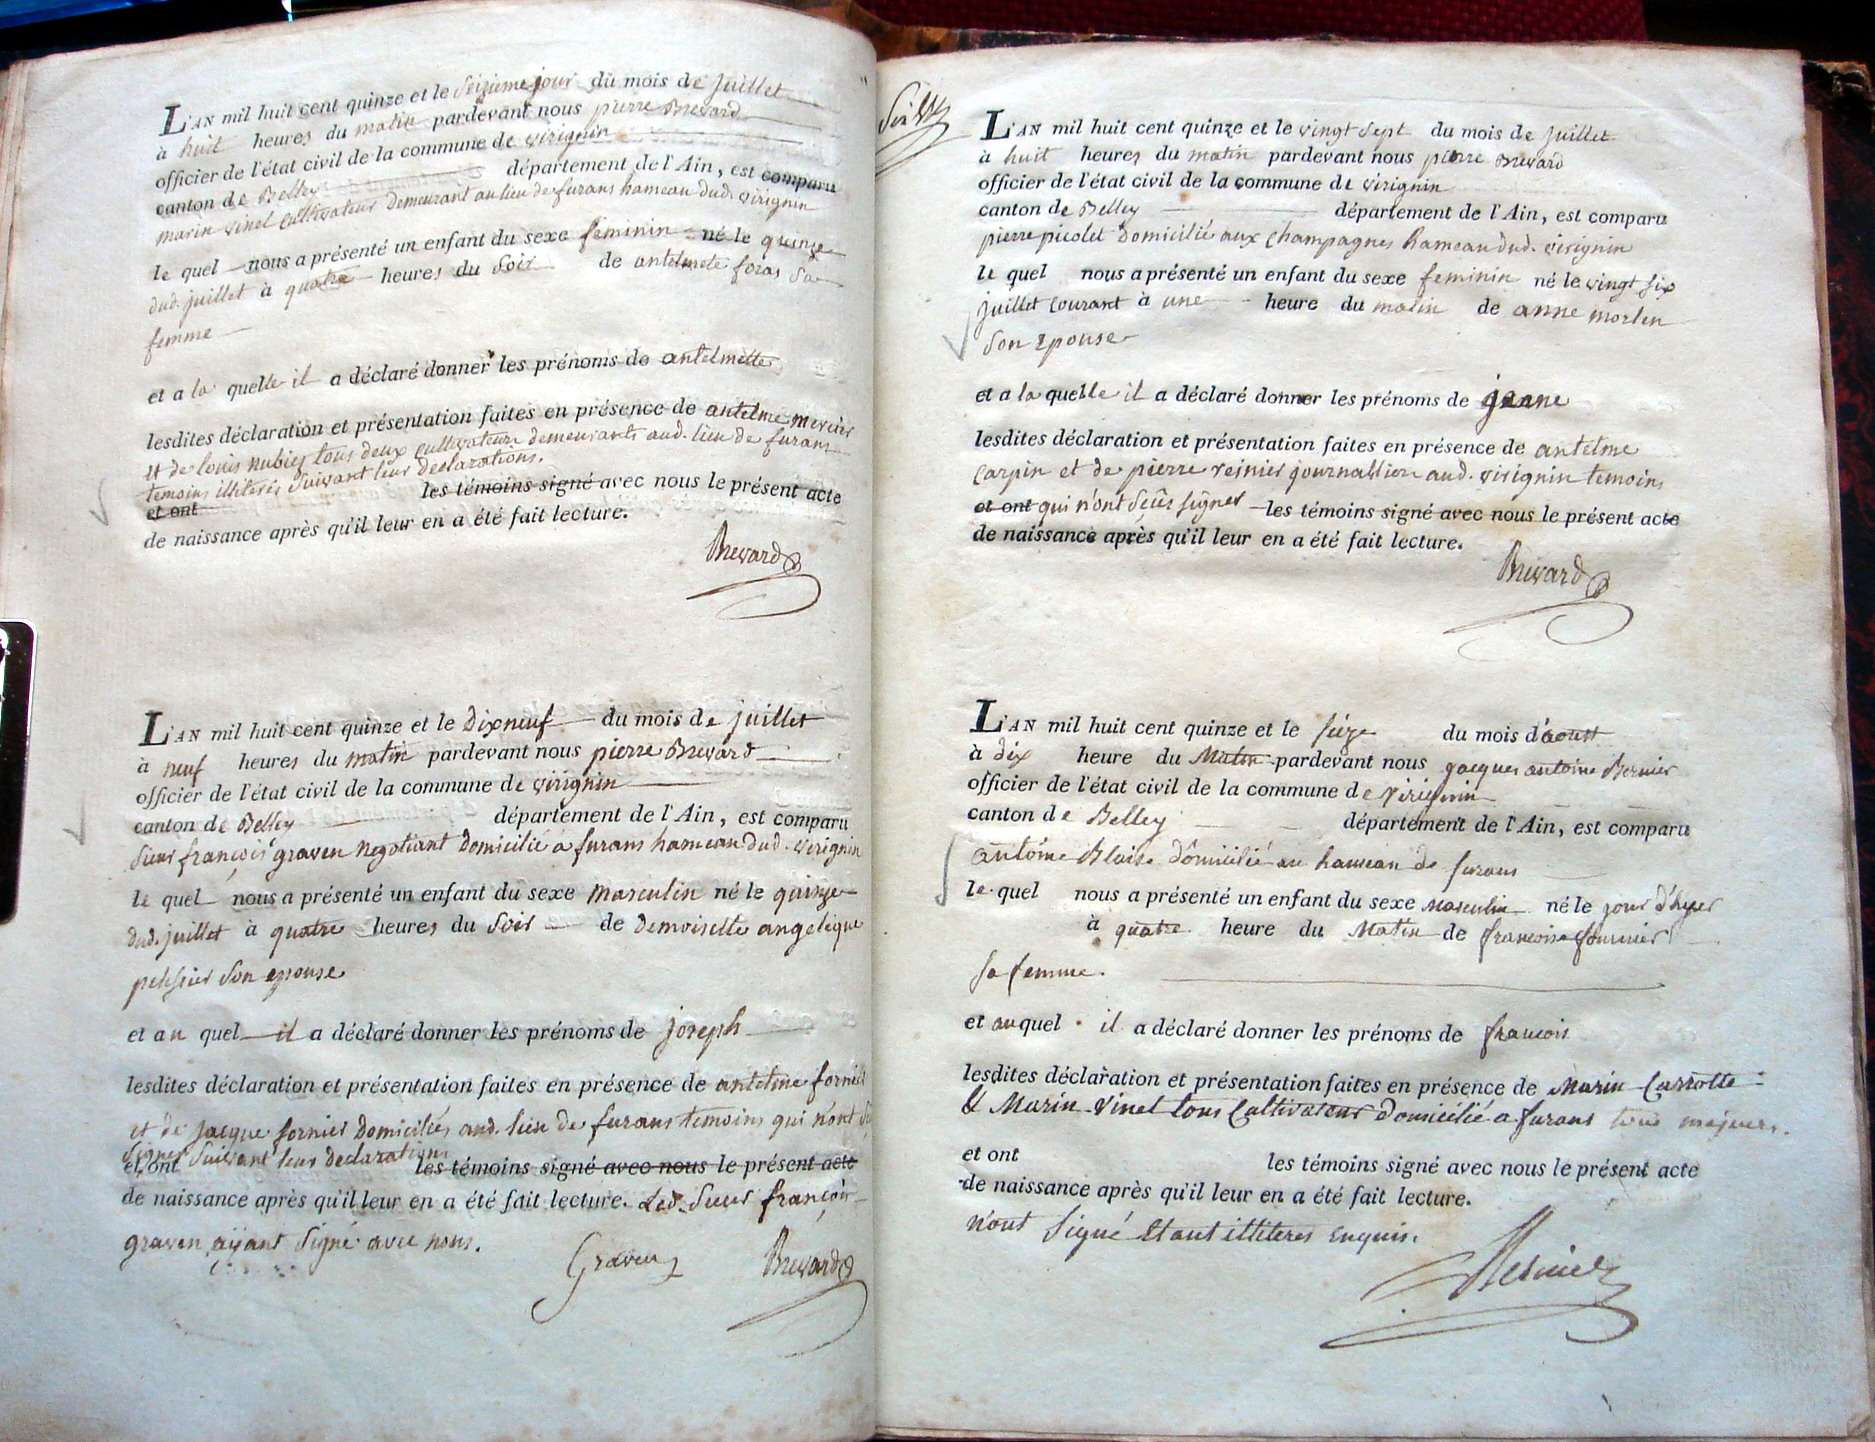 L'AN mil huit cent quinze et le Seizieme jour du mois de juillet
à huit heures du matin pardevant nous pierre Brevard
officier de l'état civil de la commune de virignin
canton de Belley département de l'Ain, est comparu
marin vinet cultivateur demeurant au lieu de furans hameau dud. virignin
le quel nous a présenté un enfant du sexe feminin né le quinze
dud. juillet à quatre heures du Soir de antelmete foras Sa
femme
et a la quelle il a déclaré donner les prénoms de antelmette
lesdites déclaration et présentation faites en présence de antelme mercier
et de louis nubies tous deux cultivateurs demeurants aud. lieu de furans
temoins illiterés Suivant leur declarations.
et ont les témoins signé avec nous le présent acte
de naissance après qu'il leur en a été fait lecture.
Brevard
L'AN mil huit cent quinze et le Dixneuf du mois de juillet
à neuf heures du matin pardevant nous pierre Brevard
officier de l'état civil de la commune de virignin
canton de Belley département de l'Ain, est comparu
Sieur françois graven negotiant Domicilié à furans hameau dud. virignin
le quel nous a présenté un enfant du sexe masculin né le quinze
dud. juillet à quatre heures du Soir de demoiselle angelique
pelissier Son epouse
et au quel il a déclaré donner les prénoms de joseph
lesdites déclaration et présentation faites en présence de antelme fornier
et de jacque fornier Domiciliés aud. lieu de furans temoins qui n'ont Su
Signer Suivant leur declarations
et ont les témoins signé avec nous le présent acte
de naissance après qu'il leur en a été fait lecture. Led. Sieur françois
graven ayant Signé avec nous.
Graven Brevard
L'AN mil huit cent quinze et le vingt sept du mois de juillet
à huit heures du matin pardevant nous pierre Brevard
officier de l'état civil de la commune de virignin
canton de Belley département de l'Ain, est comparu
pierre picolet Domicilié aux Champagnes hameau dud. virignin
le quel nous a présenté un enfant du sexe feminin né le vingt six
juillet courant à une heure du matin de anne morlen
Son epouse
et a la quelle il a déclaré donner les prénoms de jeanne
lesdites déclaration et présentation faites en présence de antelme
carpin et de pierre reinier journallier aud. virignin temoins
et ont qui n'ont Seus signer les témoins signé avec nous le présent acte
de naissance après qu'il leur en a été fait lecture.
Brevard
L'AN mil huit cent quinze et le Seize du mois d'aoust
à dix heure du Matin pardevant nous jacques antoine Bernier
officier de l'état civil de la commune de virignin
canton de Belley département de l'Ain, est comparu
antoine Blaise domicilié au hameau de furans
le quel nous a présenté un enfant du sexe Masculin né le jour d'hyer
à quatre heure du Matin de francoise fournier
Sa femme.
et auquel il a déclaré donner les prénoms de francois
lesdites déclaration et présentation faites en présence de Marin Carrotte
& Marin Vinet tous Cultivateur domicilié a furans tous majeurs.
et ont les témoins signé avec nous le présent acte
de naissance après qu'il leur en a été fait lecture.
n'ont Signé Etant illiteres Enquis.